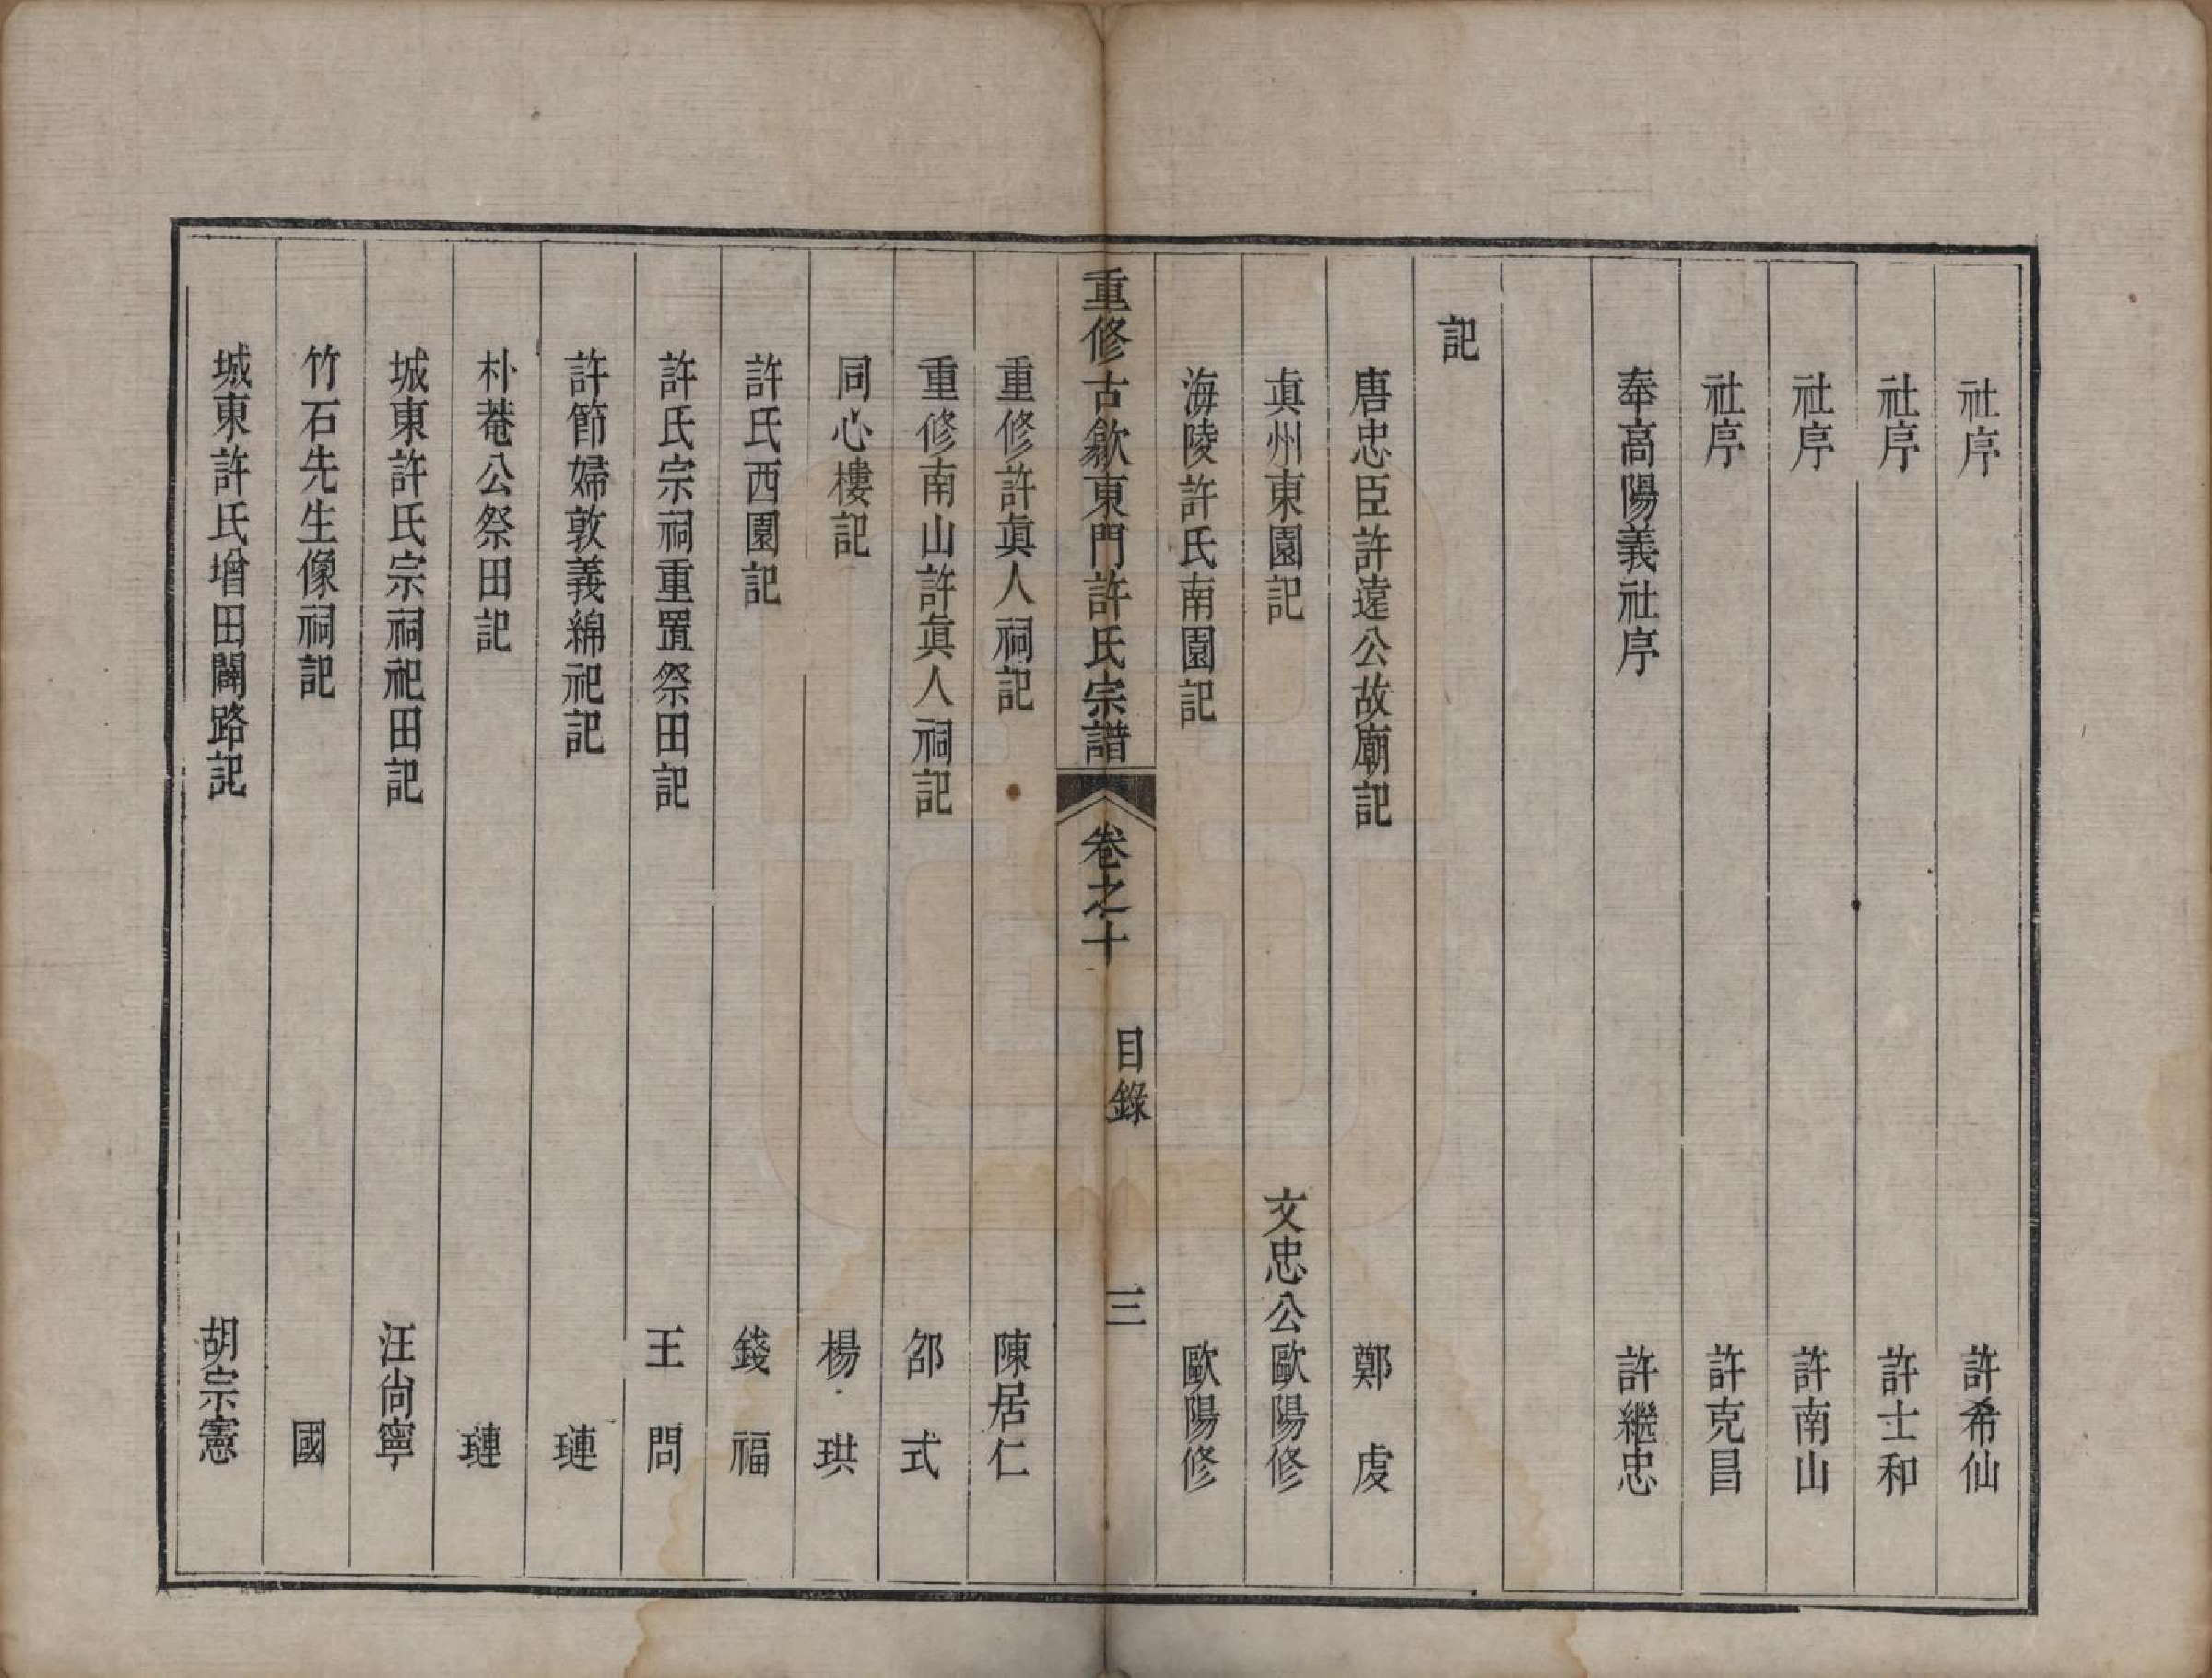 社序　許希仙
社序　許士和
社序　許南山
社序　許克昌
奉高陽義社序　許繼忠
記
唐忠臣許遠公故廟記　鄭虔
真州東園記　文忠公歐陽修
海陵許氏南園記　歐陽修
重修古歙東門許氏宗譜　卷之十　目錄　三
重修許眞人祠記　陳居仁
重修南山許眞人祠記　邵式
同心樓記　楊珙
許氏西園記　錢福
許氏宗祠重置祭田記　王問
許節婦敦義綿祀記　璉
朴菴公祭田記　璉
城東許氏宗祠祀田記　汪尚寧
竹石先生像祠記　國
城東許氏增田闢路記　胡宗憲